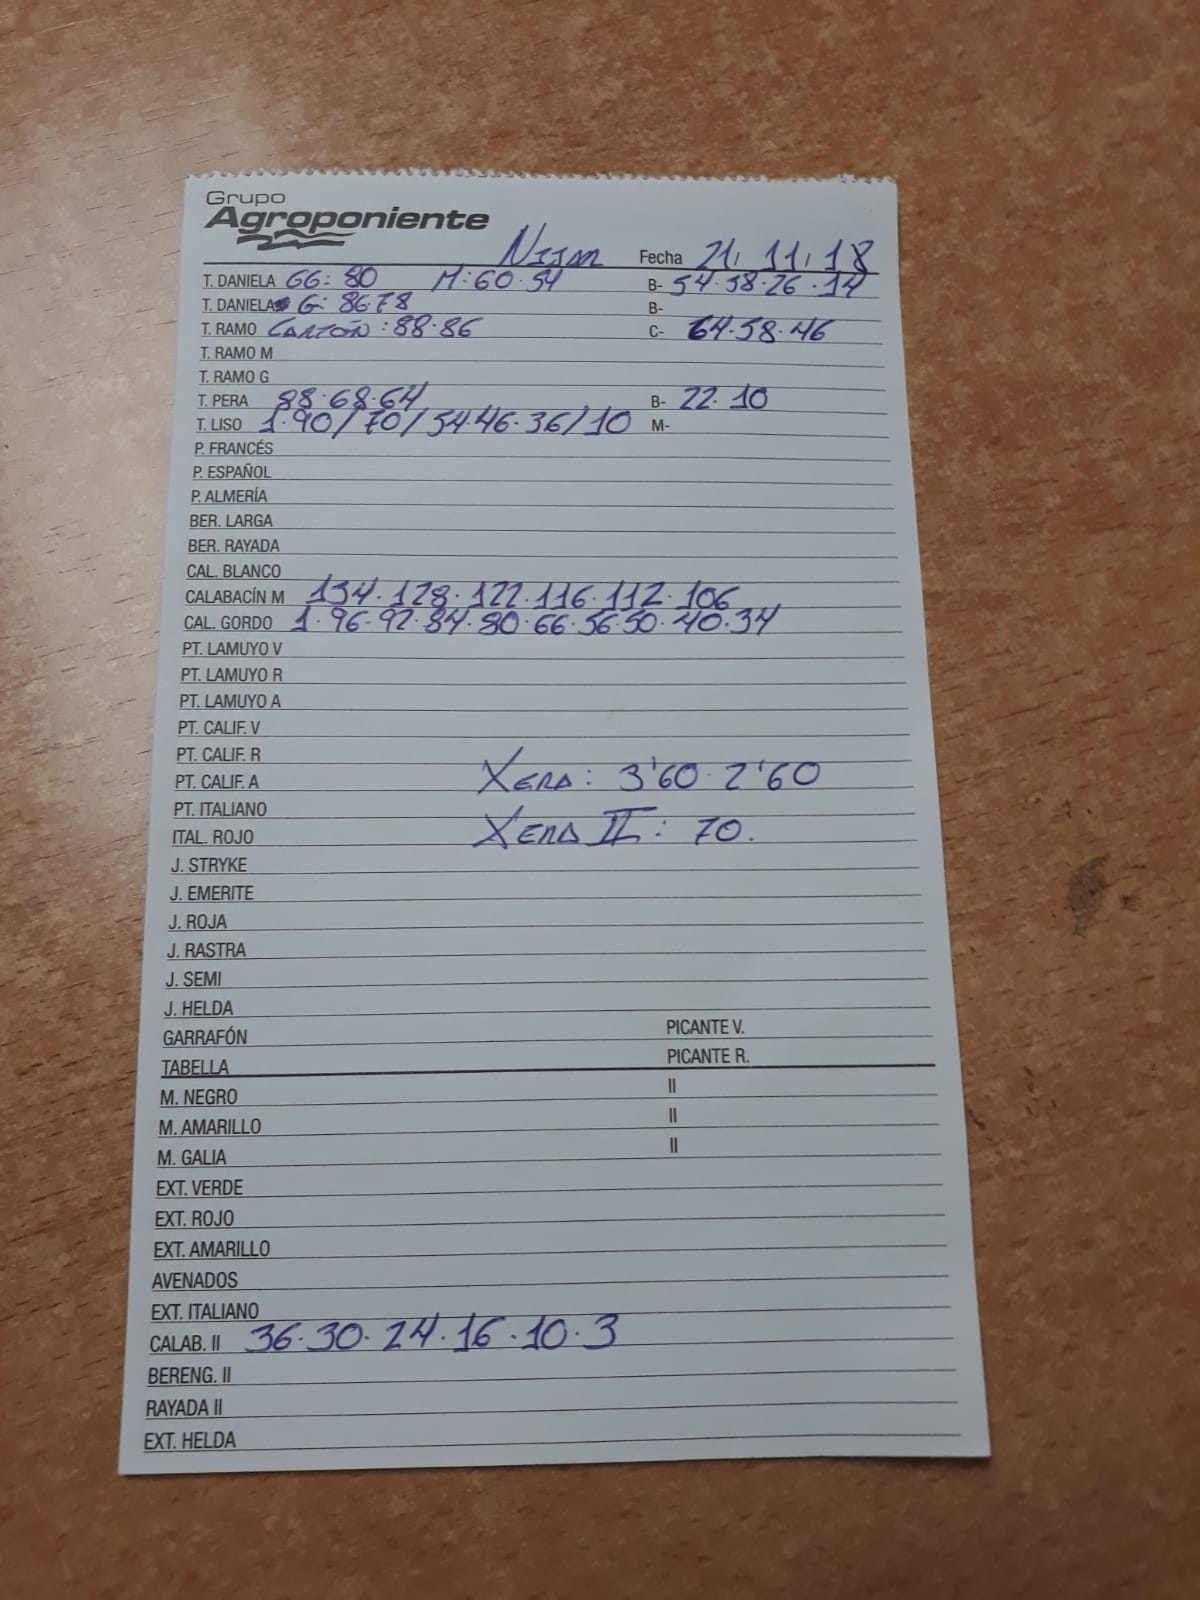 Grupo
Agroponiente
NIJAR Fecha 21, 11, 18
T. DANIELA GG: 80 M: 60.54 B- 54.38.26.14
T. DANIELA G: 86.78 B-
T. RAMO CARTÓN: 88.86 C- 64.58.46
T. RAMO M
T. RAMO G
T. PERA 88.68.64 B- 22.10
T. LISO 1.90/70/54.46.36/10 M-
P. FRANCÉS
P. ESPAÑOL
P. ALMERÍA
BER. LARGA
BER. RAYADA
CAL. BLANCO
CALABACÍN M 134.128.122.116.112.106
CAL. GORDO 1.96.92.84.80.66.56.50.40.34
PT. LAMUYO V
PT. LAMUYO R
PT. LAMUYO A
PT. CALIF. V
PT. CALIF. R
PT. CALIF. A XERA: 3'60.2'60
PT. ITALIANO
ITAL. ROJO XERA II: 70.
J. STRYKE
J. EMERITE
J. ROJA
J. RASTRA
J. SEMI
J. HELDA
GARRAFÓN PICANTE V.
TABELLA PICANTE R.
M. NEGRO II
M. AMARILLO II
M. GALIA II
EXT. VERDE
EXT. ROJO
EXT. AMARILLO
AVENADOS
EXT. ITALIANO
CALAB. II 36.30.24.16.10.3
BERENG. II
RAYADA II
EXT. HELDA